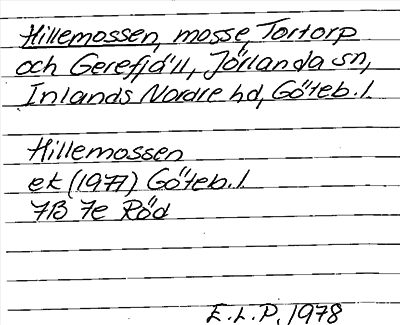 Hillemossen, mosse, Tortorp
och Gerefjäll, Jörlanda sn,
Inlands Nordre hd, Göteb. l.
Hillemossen
ek (1977) Göteb. l.
7B 7e Röd
E.L.P. 1978